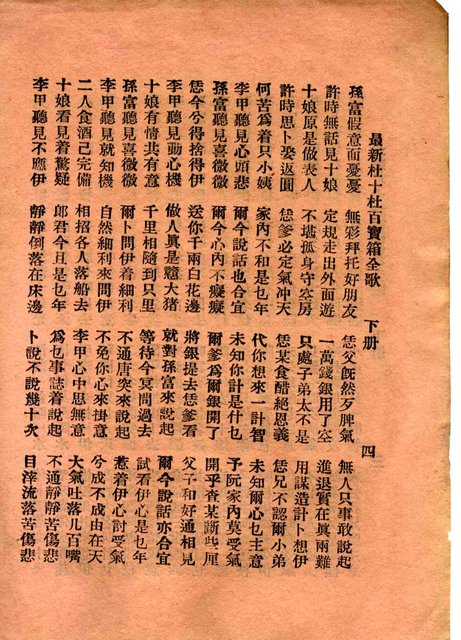 最新杜十杜百寶箱全歌　下册　四
孫富假意面憂憂　無彩拜托好朋友　恁父旣然歹脾氣　無人只事敢說起
許時無話見十娘　定規走出外面遊　一萬錢銀用了空　進退實在眞兩難
十娘原是做表人　不堪孤身守空房　只處子弟太不是　用謀造計卜想伊
許時思卜娶返圓　恁爹必定氣冲天　恁某食醋絕恩義　恁兄不認爾小弟
何苦爲着只小姨　家內不和是乜年　代你想來一計智　未知爾心乜主意
李甲聽見心頭悲　爾今說話也合宜　未知你計是什乜　予阮家內莫受氣
孫富聽見喜微微　爾今心內不癡癡　爾爹爲爾銀開了　開乎查某斷些厘
恁今兮得捨得伊　送你千兩白花邊　將銀提去恁爹看　父子和好通相見
李甲聽見動心機　做人眞是戇大猪　就對孫富來說起　爾今說話亦合宜
十娘有情共有意　千里相隨到只里　等待今冥問過去　試看伊心是乜年
孫富聽見喜微微　爾卜問伊着細利　不通唐突來說起　惹着伊心討受氣
李甲聽見就知機　自然細利來問伊　不免你心來掛意　兮成不成由在天
二人食酒己完備　相招各人落船去　李甲心中思無意　大氣吐落几百嘴
十娘看見着驚疑　郎君今旦是乜年　爲乜事誌着說起　不通靜靜苦傷悲
李甲聽見不應伊　靜靜倒落在床邊　卜說不說幾十次　目滓流落苦傷悲